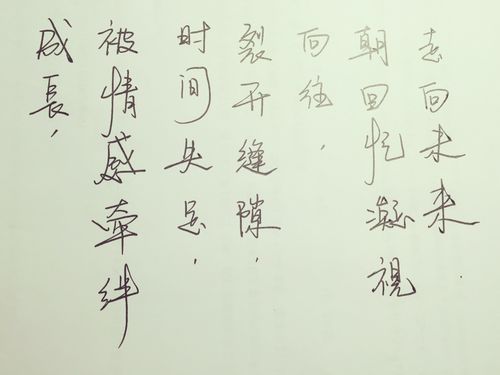 走向未来
朝回忆凝視
向往，
裂开缝隙，
时间失足，
被情感牵绊
成長，